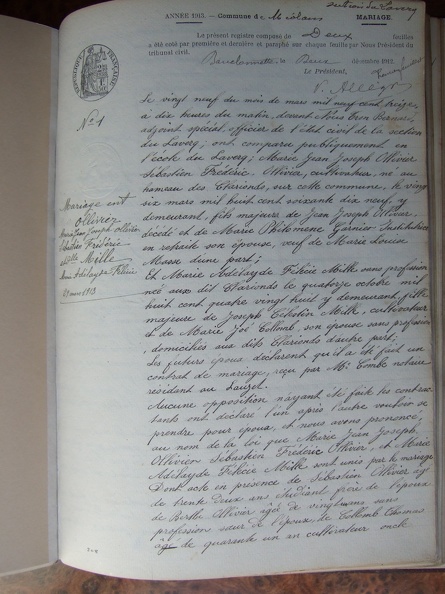 section du Lavercq
ANNÉE 1913. — Commune de Méolans MARIAGE.
Le présent registre composé de Deux feuilles
a été coté par première et dernière et paraphé sur chaque feuille par Nous Président du
tribunal civil.
Barcelonnette, le Deux décembre 1912.
Le Président,
RÉPUBLIQUE FRANÇAISE
N° 1
Le vingt neuf du mois de mars mil neuf cent treize,
à dix heures du matin, devant Nous
adjoint spécial officier de l'état civil de la section
du Laverq; ont comparu publiquement en
l'école du Laverq; Marie Jean Joseph Ollivier
Sébastien Frédéric Ollivier, cultivateur, né au
hameau des Clarionds, sur cette commune, le vingt
six mars mil huit cent soixante dix neuf, y
demeurant, fils majeur de Jean Joseph Ollivier,
décédé et de Marie Philomène Garnier Institutrice
en retraite son épouse, veuf de Marie Louise
Masse d'une part;
Et Marie Adélayde Félicie Mille sans profession
née aux dits Clarionds le quatorze octobre mil
huit cent quatre vingt huit y demeurant, fille
majeure de Joseph Mille, cultivateur
et de Marie Collomb, son épouse sans profession
, domiciliés aux dits Clarionds d'autre part;
Les futurs époux déclarent qu'il a été fait un
contrat de mariage, reçu par Me notaire
résidant au Lauzet.
Aucune opposition n'ayant été faite les contrac-
tants ont déclaré l'un après l'autre vouloir se
prendre pour époux, et nous avons prononcé,
au nom de la loi que Marie Jean Joseph
Ollivier Sébastien Frédéric Ollivier, et Marie
Adélayde Félicie Mille sont unis par le mariage
Dont acte en présence de Sébastien Ollivier âgé
de trente deux ans étudiant, frère de l'époux
de Berthe Ollivier âgée de vingt ans sans
profession sœur de l'époux, de Collomb
âgé de quarante un an cultivateur oncle
Mariage entre
Ollivier
Marie Jean Joseph Ollivier
Sébastien Frédéric
et Mlle Mille
Marie Adélayde Félicie
29 mars 1913